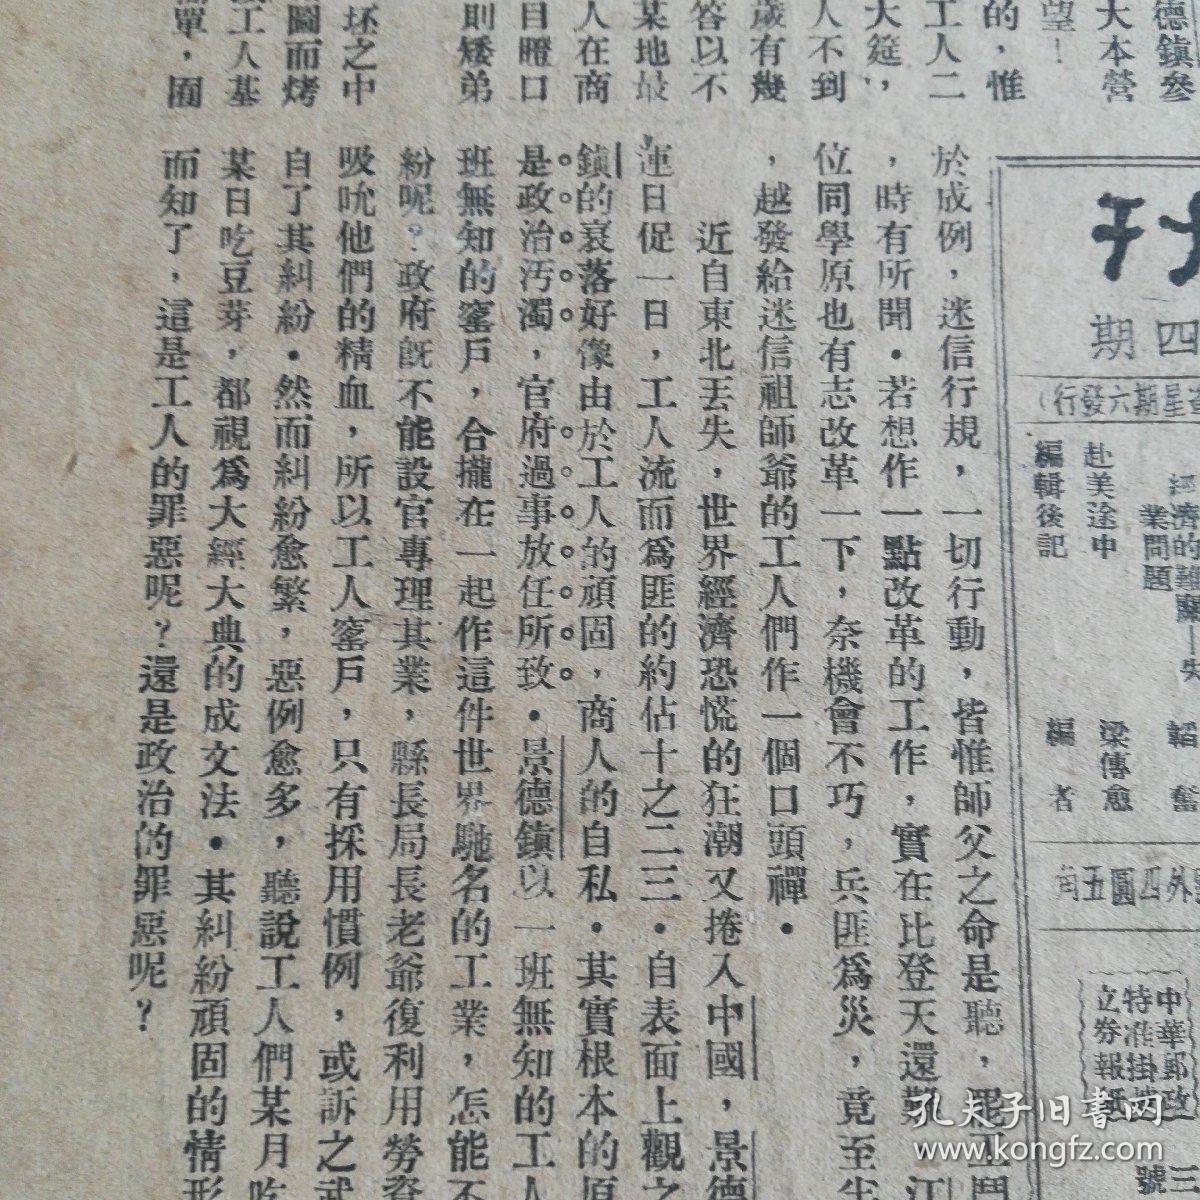 德鎮參
大本營
望！
的，惟
工人二
大筵，
人不到
歲有幾
答以不
某地最
人在商
目瞪口
則矮弟
坯之中
圖而烤
工人基
單，囿
刊
四期
逢星期六發行）
經濟的
業問題
韜奮
赴美途中
梁傳愈
編輯後記
編者
外四圓五角
中華郵政
特准掛
立券報紙
三
號
於成例，迷信行規，一切行動，皆惟師父之命是聽，罷工鬥
，時有所聞．若想作一點改革的工作，實在比登天還難．江
位同學原也有志改革一下，奈機會不巧，兵匪爲災，竟至生
，越發給迷信祖師爺的工人們作一個口頭禪．
近自東北丟失，世界經濟恐慌的狂潮又捲入中國，景德
運日促一日，工人流而爲匪的約佔十之二三．自表面上觀之
鎮的衰落好像由於工人的頑固，商人的自私．其實根本的原
是政治污濁，官府過事放任所致．景德鎮以一班無知的工人
班無知的窰戶，合攏在一起作這件世界馳名的工業，怎能不
紛呢？政府既不能設官專理其業，縣長局長老爺復利用勞資
吸吮他們的精血，所以工人窰戶，只有採用慣例，或訴之武
自了其糾紛．然而糾紛愈繁，惡例愈多，聽說工人們某月吃
某日吃豆芽，都視爲大經大典的成文法．其糾紛頑固的情形
而知了，這是工人的罪惡呢？還是政治的罪惡呢？
孔夫子旧书网
www.kongfz.com